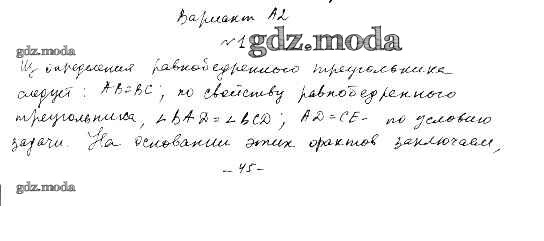 Вариант А2
№1 gdz.moda
gdz.moda
Из определения равнобедренного треугольника
следует: AB=BC; по свойству равнобедренного
треугольника, ∠BAD=∠BCD; AD=CE- по условию
задачи. На основании этих фактов заключаем,
- 45 -
gdz.moda